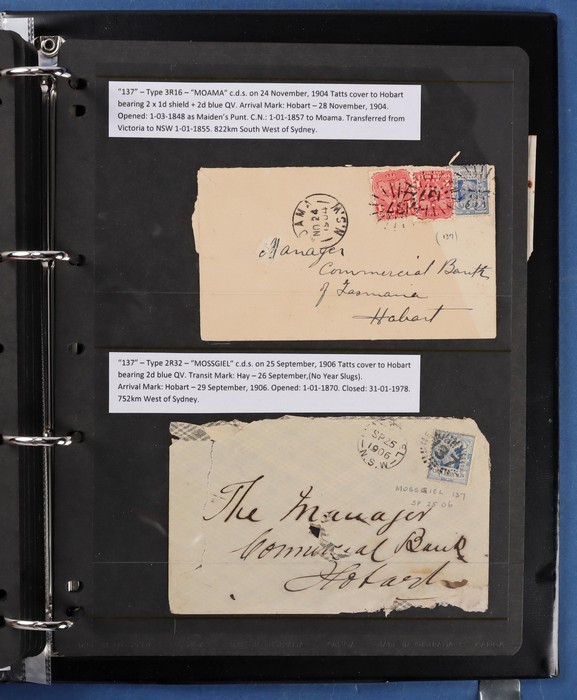 "137" – Type 3R16 – "MOAMA" c.d.s. on 24 November, 1904 Tatts cover to Hobart
bearing 2 x 1d shield + 2d blue QV. Arrival Mark: Hobart – 28 November, 1904.
Opened: 1-03-1848 as Maiden's Punt. C.N.: 1-01-1857 to Moama. Transferred from
Victoria to NSW 1-01-1855. 822km South West of Sydney.
AMA N.S.W
NO 24
1904
137
137
(137)
Manager
Commercial Bank
of Tasmania
Hobart
"137" – Type 2R32 – "MOSSGIEL" c.d.s. on 25 September, 1906 Tatts cover to Hobart
bearing 2d blue QV. Transit Mark: Hay – 26 September,(No Year Slugs).
Arrival Mark: Hobart – 29 September, 1906. Opened: 1-01-1870. Closed: 31-01-1978.
752km West of Sydney.
SP 25
1906
N.S.W
MOSSGIEL 137
SP 25 06
The Manager
Commercial Bank
Hobart